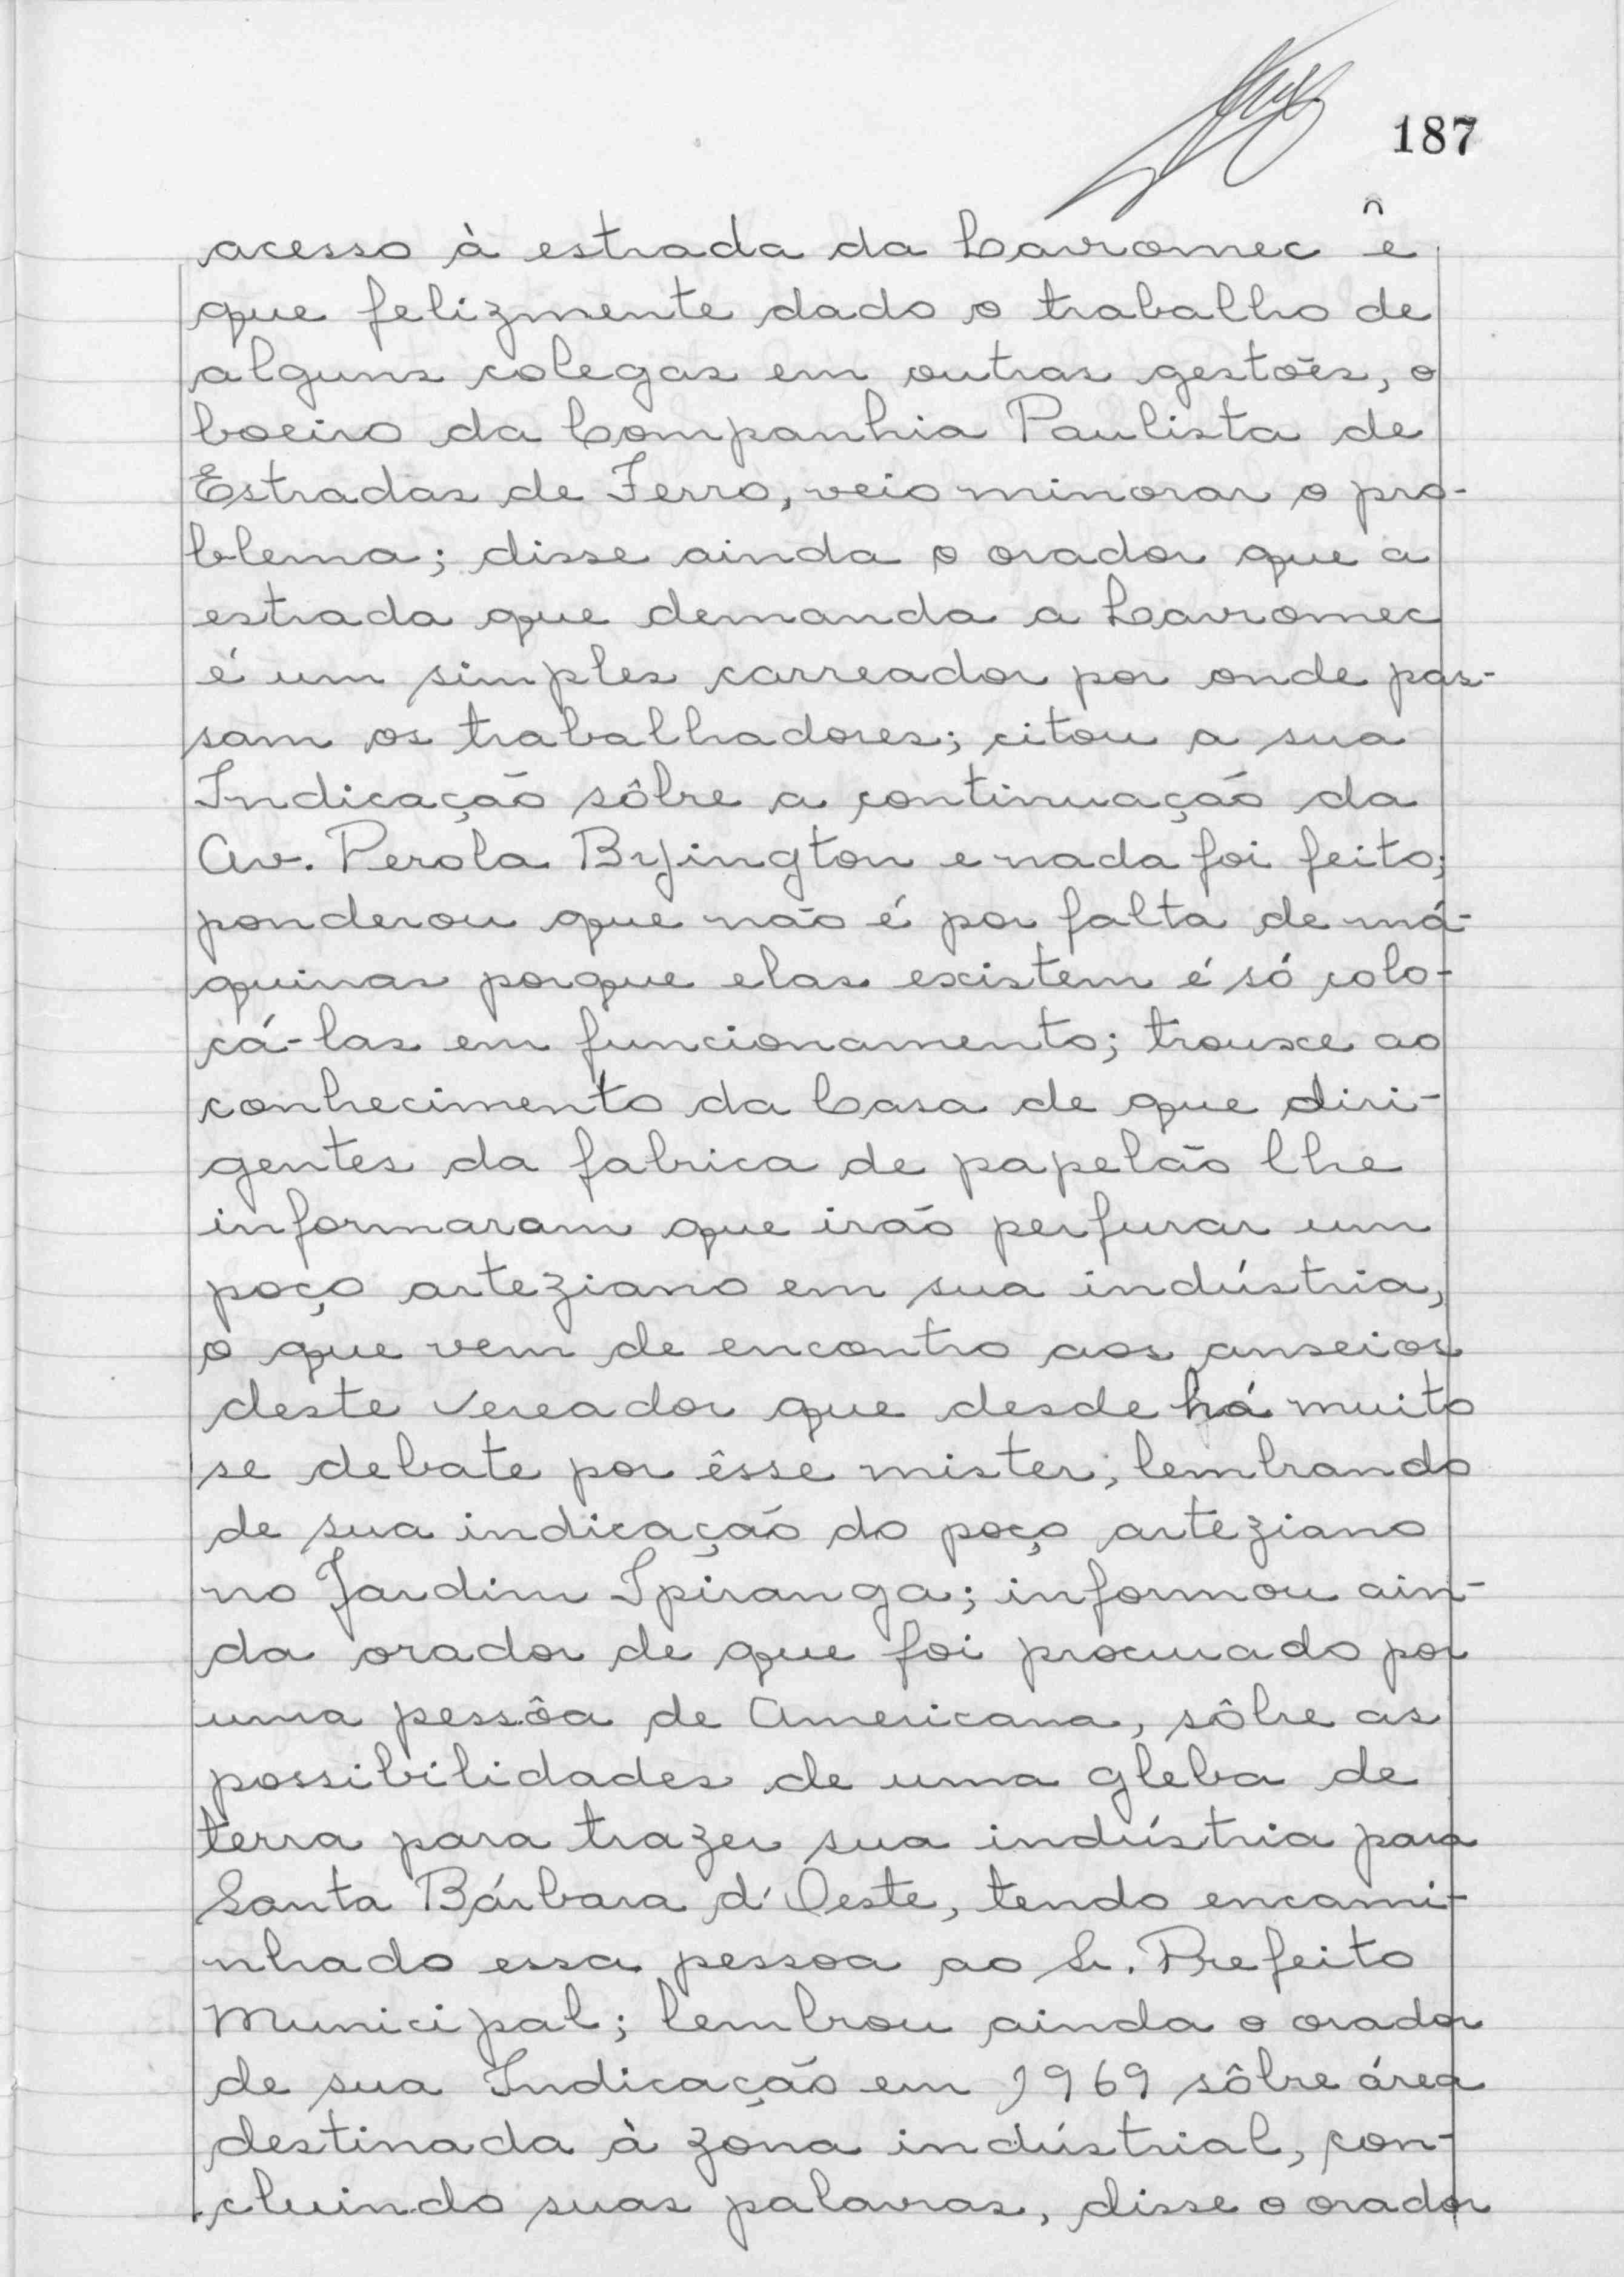 187
acesso à estrada da Lavromec ê
que felizmente dado o trabalho de
alguns colegas em outras gestões, o
boeiro da Companhia Paulista de
Estradas de Ferro, veio minorar o pro-
blema; disse ainda o orador que a
estrada que demanda a Lavromec
é um simples carreador por onde pas-
sam os trabalhadores; citou a sua
Indicação sôbre a continuação da
Av. Perola Byington e nada foi feito;
ponderou que não é por falta de má-
quinas porque elas existem é só colo-
cá-las em funcionamento; trouxe ao
conhecimento da Casa de que diri-
gentes da fabrica de papelão lhe
informaram que irão perfurar um
poço arteziano em sua indústria,
o que vem de encontro aos anseios
deste Vereador que desde há muito
se debate por êsse mister; lembrando
de sua indicação do poço arteziano
no Jardim Ipiranga; informou ain-
da orador de que foi procurado por
uma pessôa de Americana, sôbre as
possibilidades de uma gleba de
terra para trazer sua indústria para
Santa Bárbara d'Oeste, tendo encami-
nhado essa pessoa ao Sr. Prefeito
Municipal; lembrou ainda o orador
de sua Indicação em 1969 sôbre área
destinada à zona indústrial, con-
cluindo suas palavras, disse o orador